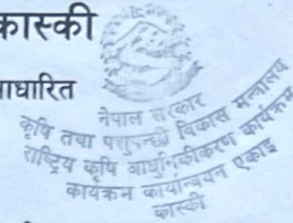 कास्की
ाधारित
नेपाल सरकार
कृषि तथा पशुपन्छी विकास मन्त्रालय
राष्ट्रिय कृषि आधुनिकीकरण कार्यक्रम
कार्यक्रम कार्यान्वयन एकाइ
कास्की